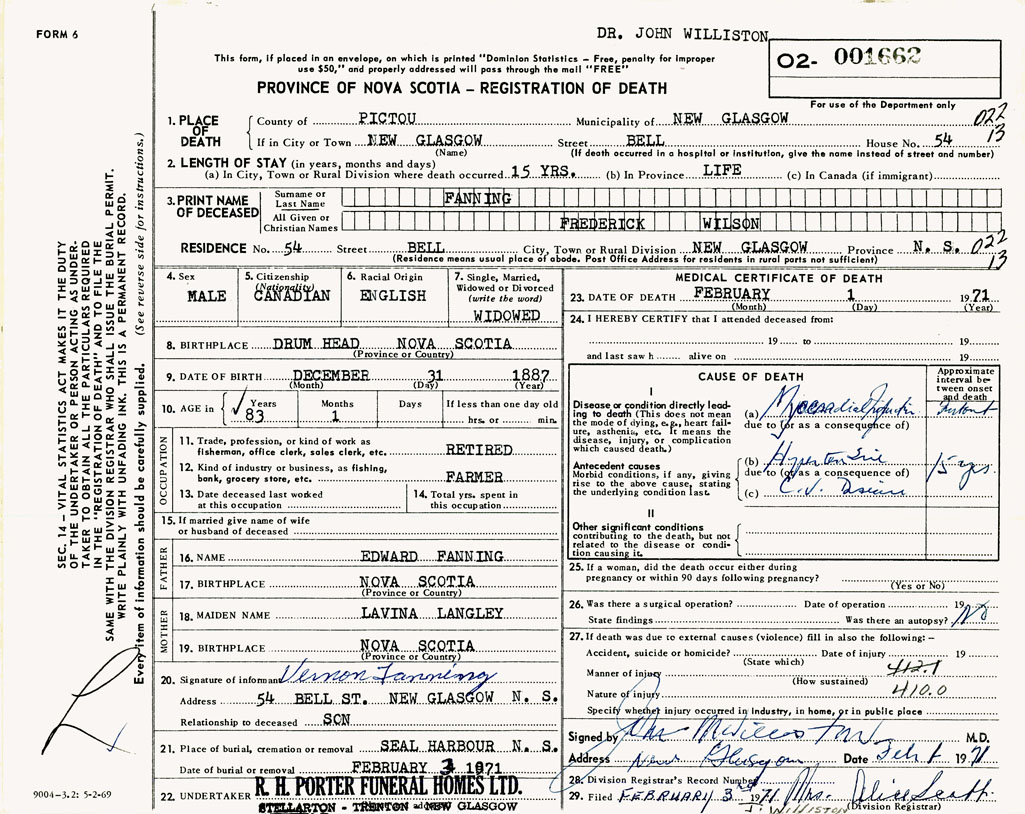 FORM 6
DR. JOHN WILLISTON
O2- 001662
This form, if placed in an envelope, on which is printed "Dominion Statistics – Free, penalty for improper
use $50," and properly addressed will pass through the mail "FREE"
PROVINCE OF NOVA SCOTIA – REGISTRATION OF DEATH
For use of the Department only
1. PLACE OF DEATH
County of PICTOU Municipality of NEW GLASGOW 022
If in City or Town NEW GLASGOW Street BELL House No. 54 13
(Name) (If death occurred in a hospital or institution, give the name instead of street and number)
2. LENGTH OF STAY (in years, months and days)
(a) In City, Town or Rural Division where death occurred 15 YRS. (b) In Province LIFE (c) In Canada (if immigrant)
3. PRINT NAME OF DECEASED
Surname or Last Name FANNING
All Given or Christian Names FREDERICK WILSON
RESIDENCE No. 54 Street BELL City, Town or Rural Division NEW GLASGOW Province N. S. 022
(Residence means usual place of abode. Post Office Address for residents in rural parts not sufficient) 13
4. Sex
MALE
5. Citizenship
(Nationality)
CANADIAN
6. Racial Origin
ENGLISH
7. Single, Married,
Widowed or Divorced
(write the word)
WIDOWED
8. BIRTHPLACE DRUM HEAD NOVA SCOTIA
(Province or Country)
9. DATE OF BIRTH DECEMBER 31 1887
(Month) (Day) (Year)
10. AGE in Years Months Days If less than one day old
83 1 hrs. or min.
OCCUPATION
11. Trade, profession, or kind of work as
fisherman, office clerk, sales clerk, etc. RETIRED
12. Kind of industry or business, as fishing,
bank, grocery store, etc. FARMER
13. Date deceased last worked
at this occupation
14. Total yrs. spent in
this occupation
15. If married give name of wife
or husband of deceased
FATHER
16. NAME EDWARD FANNING
17. BIRTHPLACE NOVA SCOTIA
(Province or Country)
MOTHER
18. MAIDEN NAME LAVINA LANGLEY
19. BIRTHPLACE NOVA SCOTIA
(Province or Country)
20. Signature of informant Vernon Fanning
Address 54 BELL ST. NEW GLASGOW N. S.
Relationship to deceased SON
21. Place of burial, cremation or removal SEAL HARBOUR N. S.
Date of burial or removal FEBRUARY 3 1971
22. UNDERTAKER R. H. PORTER FUNERAL HOMES LTD.
STELLARTON - TRENTON and NEW GLASGOW
MEDICAL CERTIFICATE OF DEATH
23. DATE OF DEATH FEBRUARY 1 1971
(Month) (Day) (Year)
24. I HEREBY CERTIFY that I attended deceased from:
19 to 19
and last saw h alive on 19
CAUSE OF DEATH
Approximate
interval be-
tween onset
and death
I
Disease or condition directly lead-
ing to death (This does not mean
the mode of dying, e.g., heart fail-
ure, asthenia, etc. It means the
disease, injury, or complication
which caused death.)
(a)
due to (or as a consequence of)
Antecedent causes
Morbid conditions, if any, giving
rise to the above cause, stating
the underlying condition last.
(b) 15 yrs.
due to (or as a consequence of)
(c) C.V. Disease
II
Other significant conditions
contributing to the death, but not
related to the disease or condi-
tion causing it.
25. If a woman, did the death occur either during
pregnancy or within 90 days following pregnancy?
(Yes or No)
26. Was there a surgical operation? Date of operation 19
State findings Was there an autopsy? No
27. If death was due to external causes (violence) fill in also the following: –
Accident, suicide or homicide? Date of injury 19
(State which)
Manner of injury 412.1
(How sustained)
Nature of injury 410.0
Specify whether injury occurred in industry, in home, or in public place
Signed by M.D.
Address New Glasgow Date Feb 1 1971
28. Division Registrar's Record Number
29. Filed FEBRUARY 3rd 1971 Mrs. Alice Scott
J. WILLISTON (Division Registrar)
SEC. 14 – VITAL STATISTICS ACT MAKES IT THE DUTY
OF THE UNDERTAKER OR PERSON ACTING AS UNDER-
TAKER TO OBTAIN ALL THE PARTICULARS REQUIRED
IN THE "REGISTRATION OF DEATH" AND TO FILE THE
SAME WITH THE DIVISION REGISTRAR WHO SHALL ISSUE THE BURIAL PERMIT.
WRITE PLAINLY WITH UNFADING INK. THIS IS A PERMANENT RECORD.
Every item of information should be carefully supplied. (See reverse side for instructions.)
9004-3.2: 5-2-69